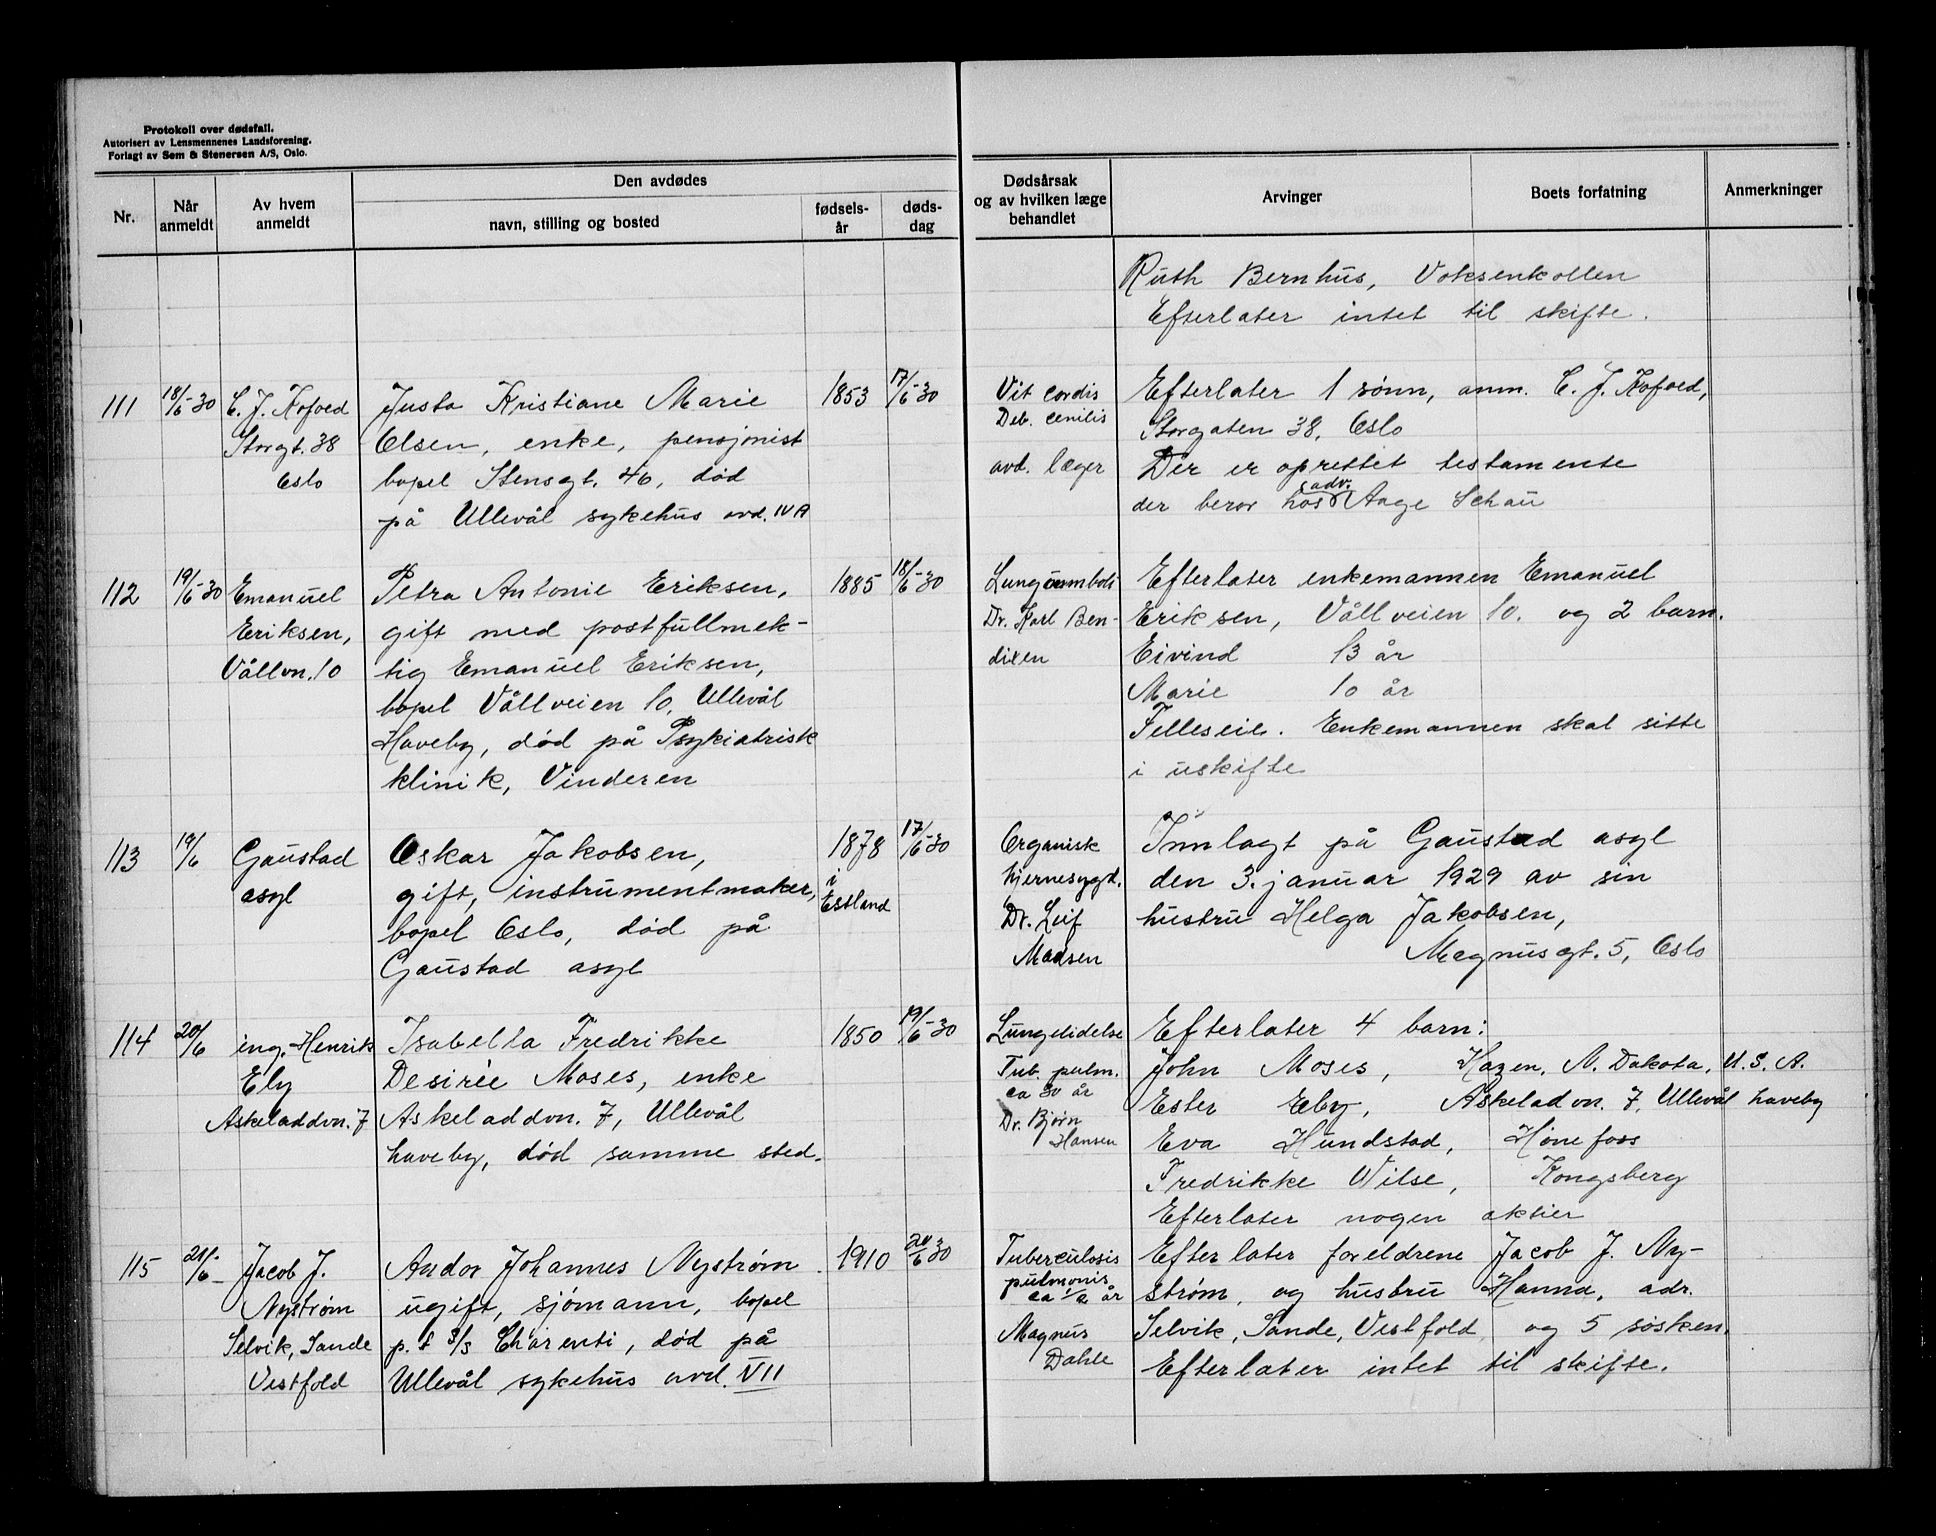 Protokoll over dødsfall.
Autorisert av Lensmennenes Landsforening.
Forlagt av Sem & Stenersen A/S, Oslo.
Nr.
Når anmeldt
Av hvem anmeldt
Den avdødes
navn, stilling og bosted
fødselsår
dødsdag
Dødsårsak
og av hvilken læge
behandlet
Arvinger
Boets forfatning
Anmerkninger
Ruth Bernhus, Voksenkollen
Efterlater intet til skifte.
111
18/6-30
C. J. Kofoed
Storgt. 38
Oslo
Justa Kristiane Marie
Olsen, enke, pensjonist
bopel Stensgt. 46, død
på Ullevål sykehus avd. IV A
1853
17/6-30
Vit cordis
Deb. cenilis
avd. læger
Efterlater 1 sønn, anm. C. J. Kofoed,
Storgaten 38, Oslo
Der er oprettet testamente
der beror hos adv. Aage Schau
112
19/6-30
Emanuel
Eriksen,
Vållvn. 10
Petra Antonie Eriksen,
gift med postfullmek-
tig Emanuel Eriksen,
bopel Vållveien 10, Ullevål
Haveby, død på Psykiatrisk
klinik, Vinderen
1885
18/6-30
Dr. Karl Ben-
dixen
Efterlater enkemannen Emanuel
Eriksen, Vållveien 10. og 2 barn.
Eivind 13 år
Marie 10 år
Felleseie. Enkemannen skal sitte
i uskifte
113
19/6
Gaustad
asyl
Oskar Jakobsen,
gift, instrumentmaker,
bopel Oslo, død på
Gaustad asyl
1878
i
Estland
17/6-30
Organisk
hjernesygd.
Dr. Leif
Madsen
Innlagt på Gaustad asyl
den 3. januar 1929 av sin
hustru Helga Jakobsen,
Magnusgt. 5, Oslo
114
20/6
ing. Henrik
Eby
Askeladdvn. 7
Isabella Fredrikke
Desirée Moses, enke
Askeladdvn. 7, Ullevål
haveby, død samme sted.
1850
19/6-30
Lungelidelse
Tub. pulm.
ca 30 år
Dr. Bjørn
Hansen
Efterlater 4 barn:
John Moses, Hazen, N. Dakota, U.S.A.
Ester Eby, Askeladvn. 7, Ullevål haveby
Eva Hundstad, Hønefoss
Fredrikke Wilse, Kongsberg
Efterlater nogen aktier
115
21/6-
Jacob J.
Nystrøm
Selvik, Sande
Vestfold
Andor Johannes Nystrøm.
ugift, sjømann, bopel
p. t S/S Charenti, død på
Ullevål sykehus avd. VII
1910
20/6 30
Tuberculosis
pulmonis
ca 1/2 år
Magnus
Dahle
Efterlater foreldrene Jacob J. Ny-
strøm, og hustru Hanna, adr.
Selvik, Sande, Vestfold og 5 søsken.
Efterlater intet til skifte.